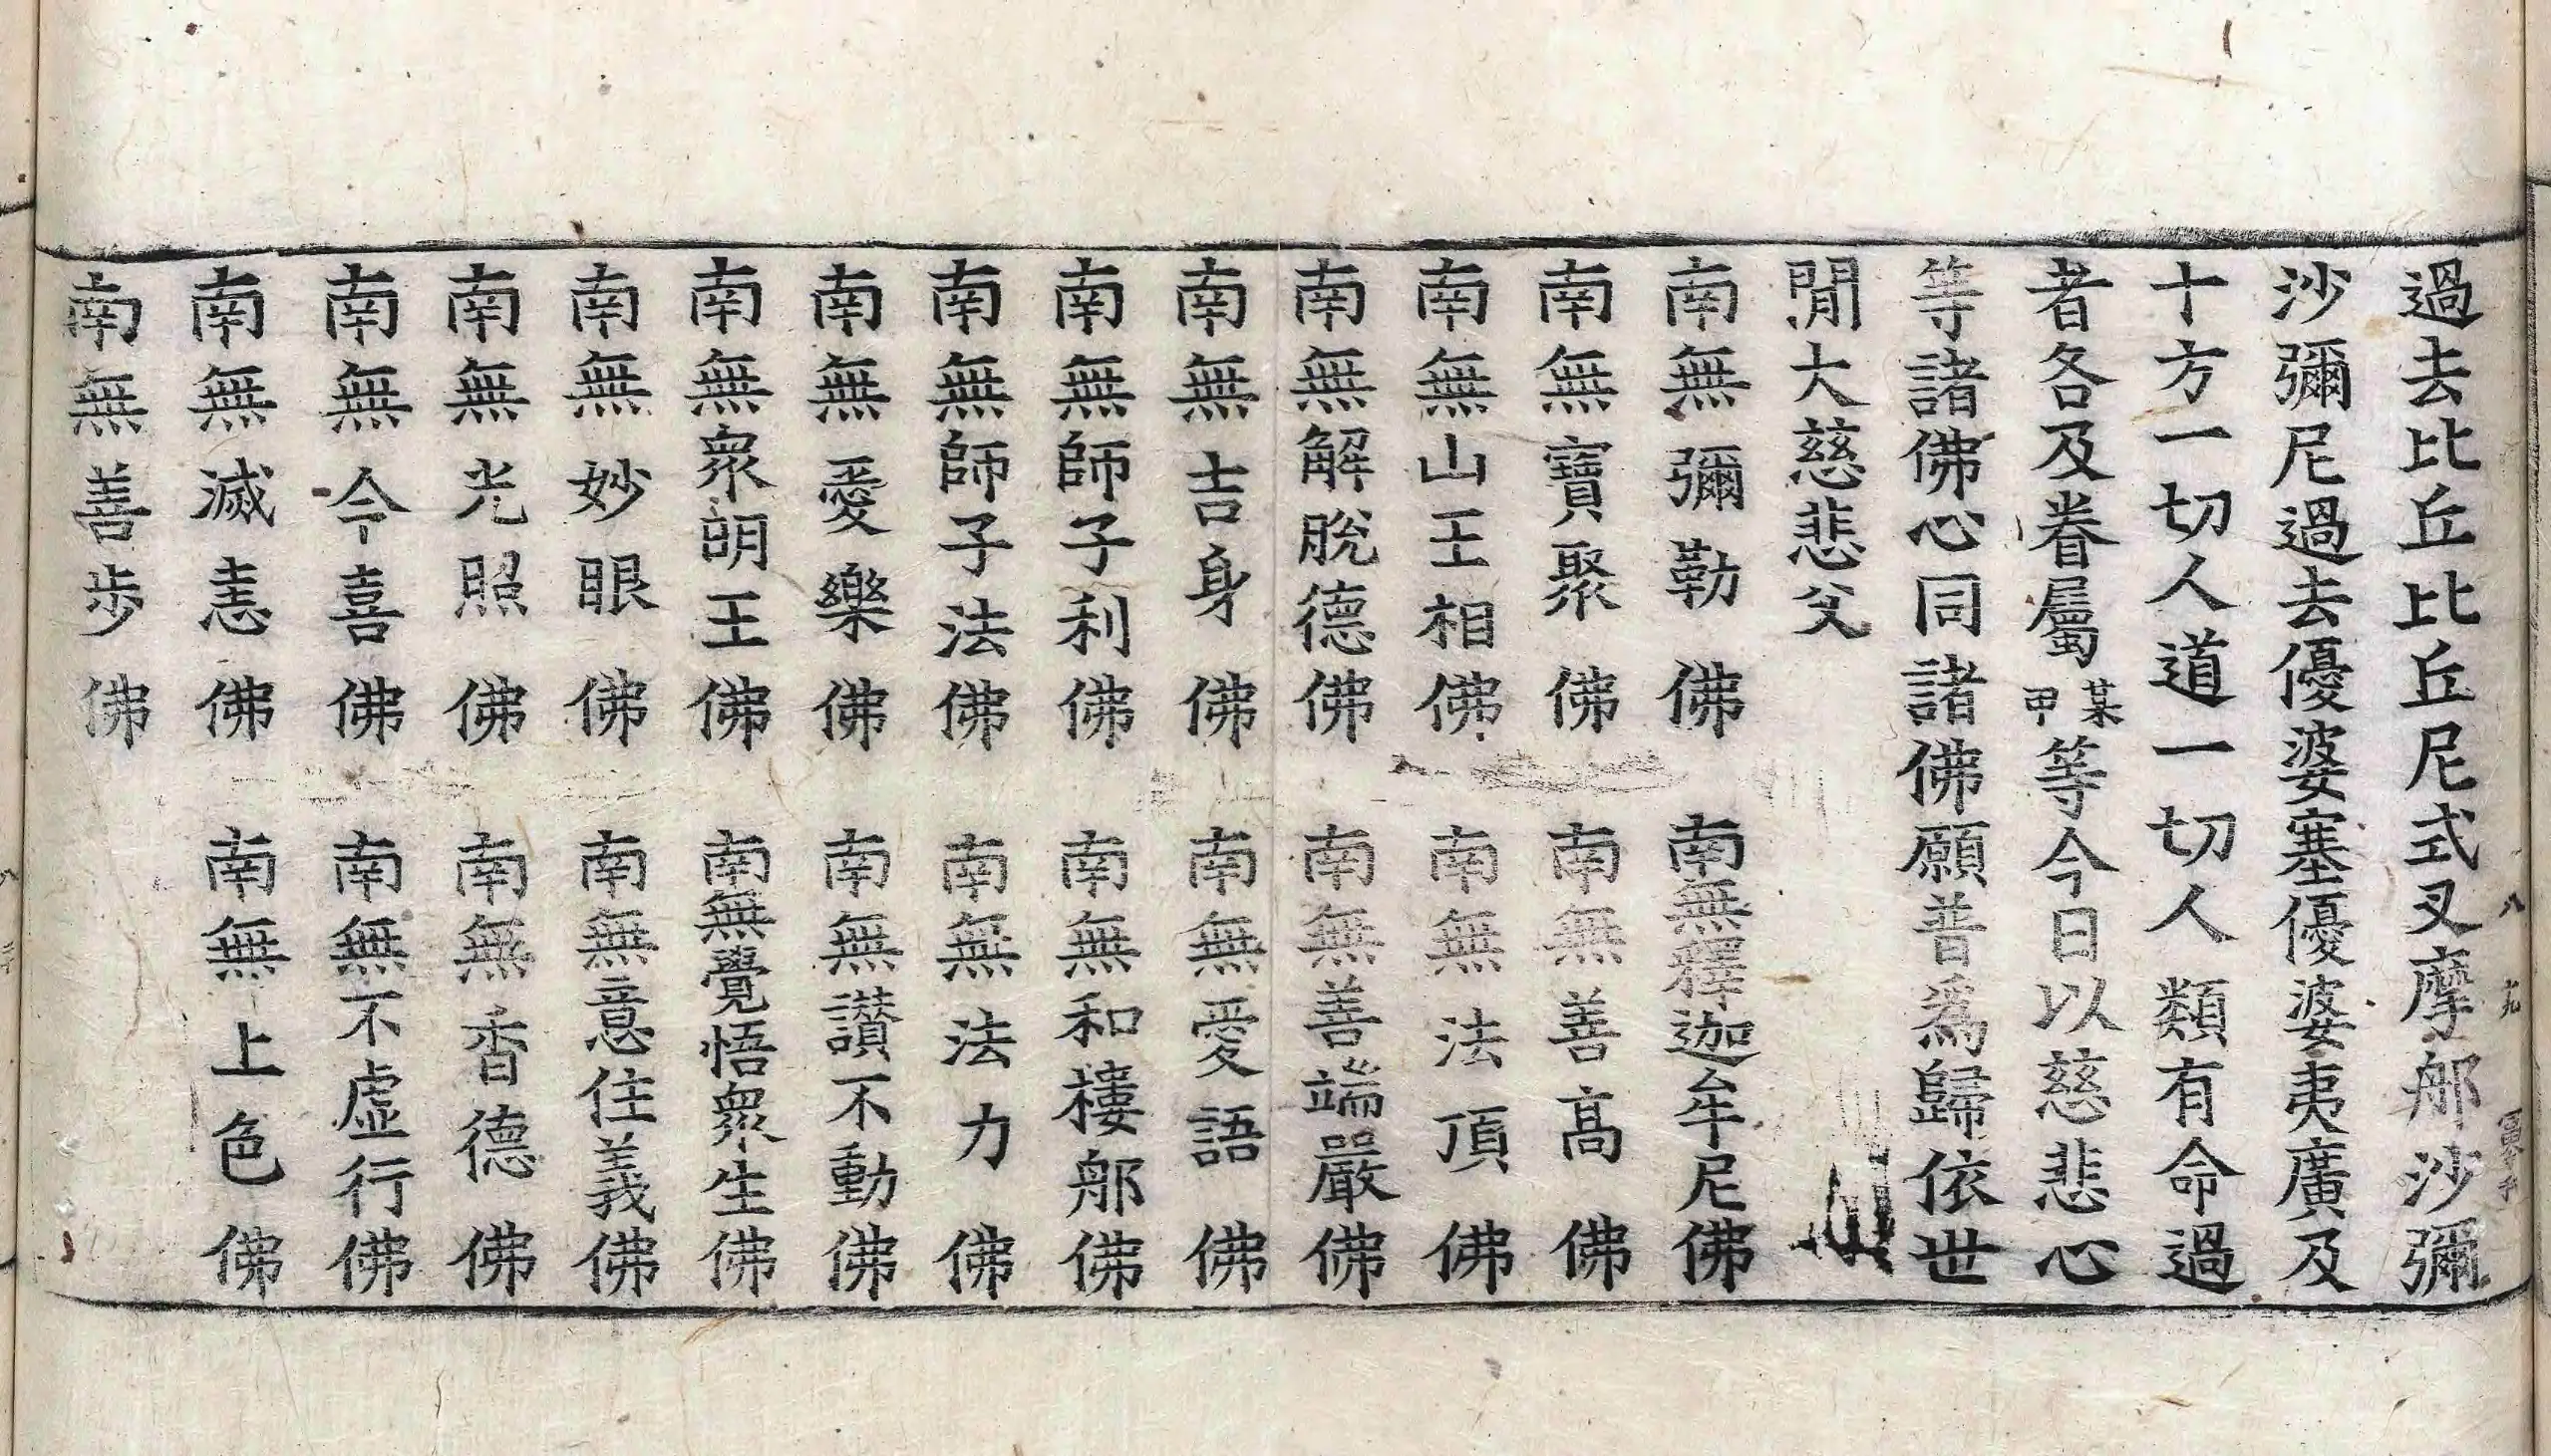 過去比丘比丘尼式叉摩那沙彌
沙彌尼過去優婆塞優婆夷廣及
十方一切人道一切人類有命過
者各及眷屬某甲等今日以慈悲心
等諸佛心同諸佛願普爲歸依世
閒大慈悲父
南無彌勒佛 南無釋迦牟尼佛
南無寶聚佛 南無善高佛
南無山王相佛 南無法頂佛
南無解脫德佛 南無善端嚴佛
南無吉身佛 南無愛語佛
南無師子利佛 南無和樓那佛
南無師子法佛 南無法力佛
南無愛樂佛 南無讃不動佛
南無衆明王佛 南無覺悟衆生佛
南無妙眼佛 南無意住義佛
南無光照佛 南無香德佛
南無令喜佛 南無不虛行佛
南無滅恚佛 南無上色佛
南無善步佛